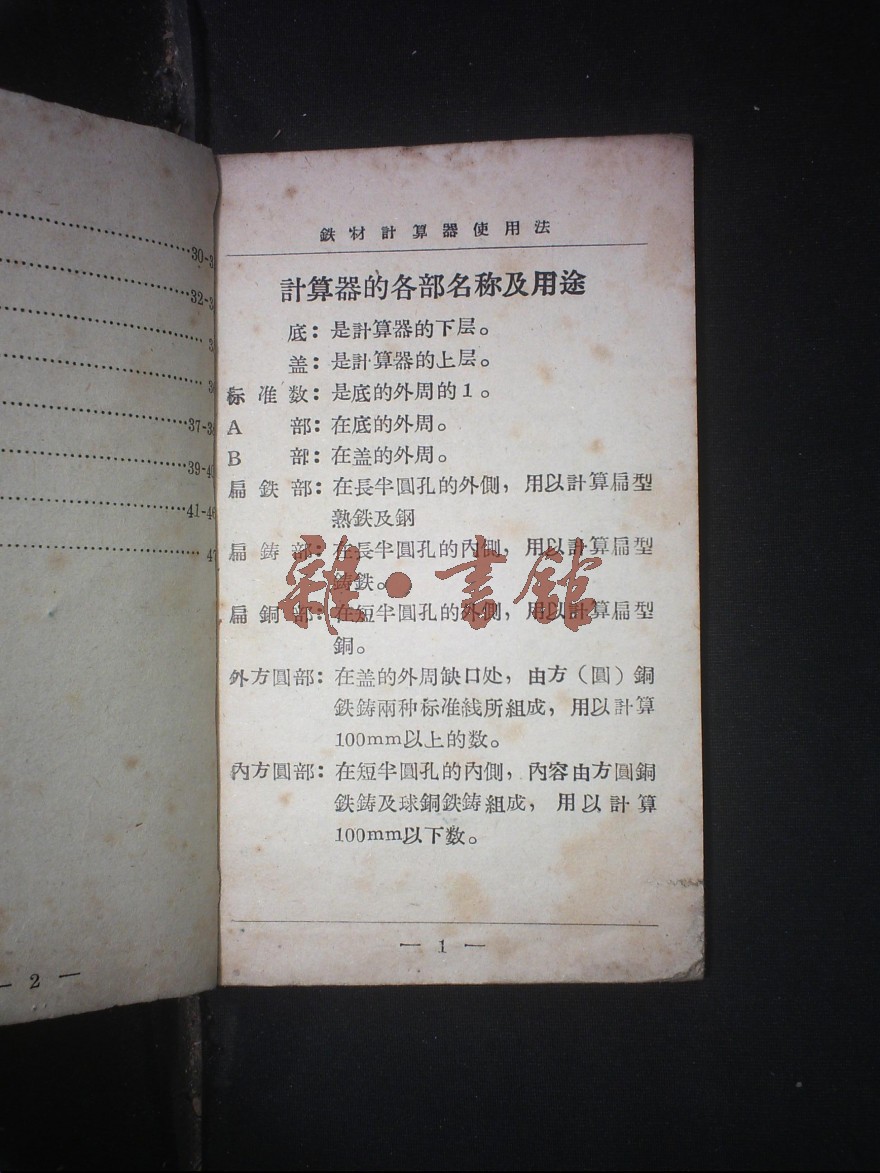 30-3
32-3
3
3
37-38
39-40
41-46
47
— 2 —
鉄材計算器使用法
計算器的各部名称及用途
底：是計算器的下层。
盖：是計算器的上层。
标准数：是底的外周的1。
A 部：在底的外周。
B 部：在盖的外周。
扁鉄部：在長半圓孔的外側，用以計算扁型
熟鉄及鋼
扁鋳部：在長半圓孔的內側，用以計算扁型
鋳鉄。
扁銅部：在短半圓孔的外側，用以計算扁型
銅。
外方圓部：在盖的外周缺口处，由方（圓）銅
鉄鋳兩种标准綫所組成，用以計算
100mm以上的数。
內方圓部：在短半圓孔的內側，內容由方圓銅
鉄鋳及球銅鉄鋳組成，用以計算
100mm以下数。
— 1 —
雜·書館